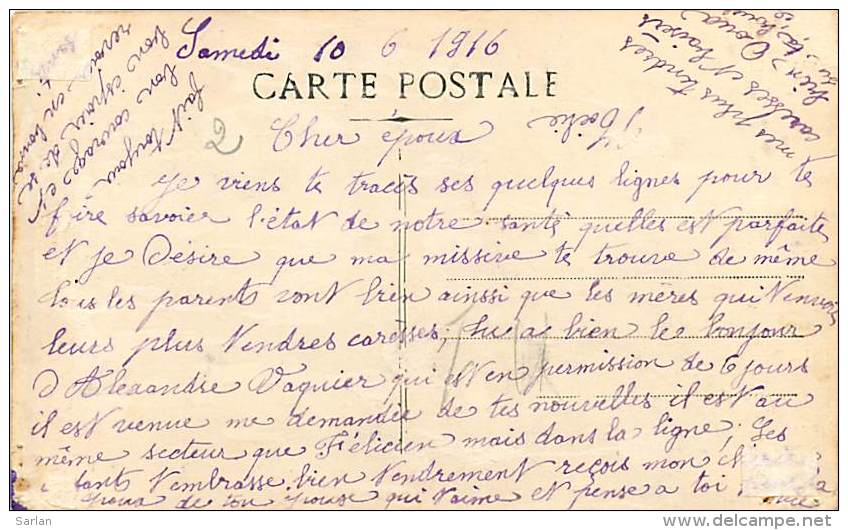 Samedi 10 6 1916
CARTE POSTALE
2
Cher époux
Je viens te tracés ses quelques lignes pour te
fére savoier l'état de notre santé quelles est parfaite
et je Désire que ma missive te trouve de même
tous les parents vont bien ainssi que les mères qui t'envoie
leurs plus tendres caresses, tu a bien le bonjour
d'Alexandre Vaquier qui est en permission de 6 jours
il est venue me demandée de tes nouvelles il est au
même secteur que Félicien mais dans la ligne. Ses
t'embrasse bien tendrement reçois mon
époux de ton épouse qui t'aime et pense a toi
fait toujour
bon courage et
bon espoir de se
revoir
mes plus tendres
caresses et baisers
Delcampe.net
Sarlan